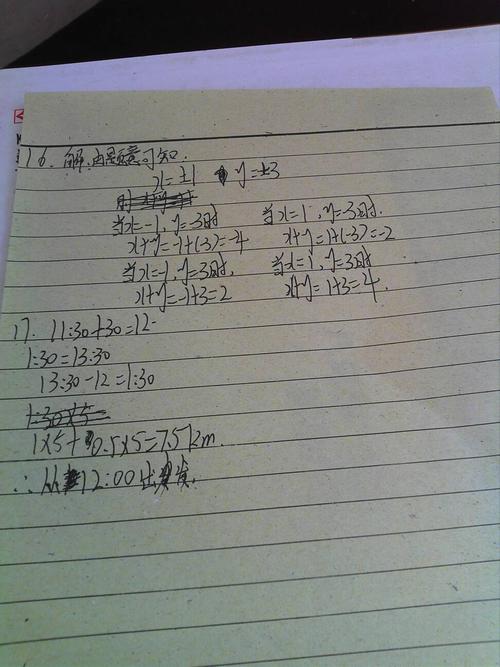 16. 解:由题意可知.
x=±1 y=±3
当x=-1,y=-3时 当x=1,y=-3时.
x+y=-1+(-3)=-4 x+y=1+(-3)=-2
当x=-1,y=3时, 当x=1,y=3时
x+y=-1+3=2 x+y=1+3=4.
17. 11:30+30=12
1:30=13:30
13:30-12=1:30
1:30×5
1×5+0.5×5=7.5km.
∴从12:00出发.